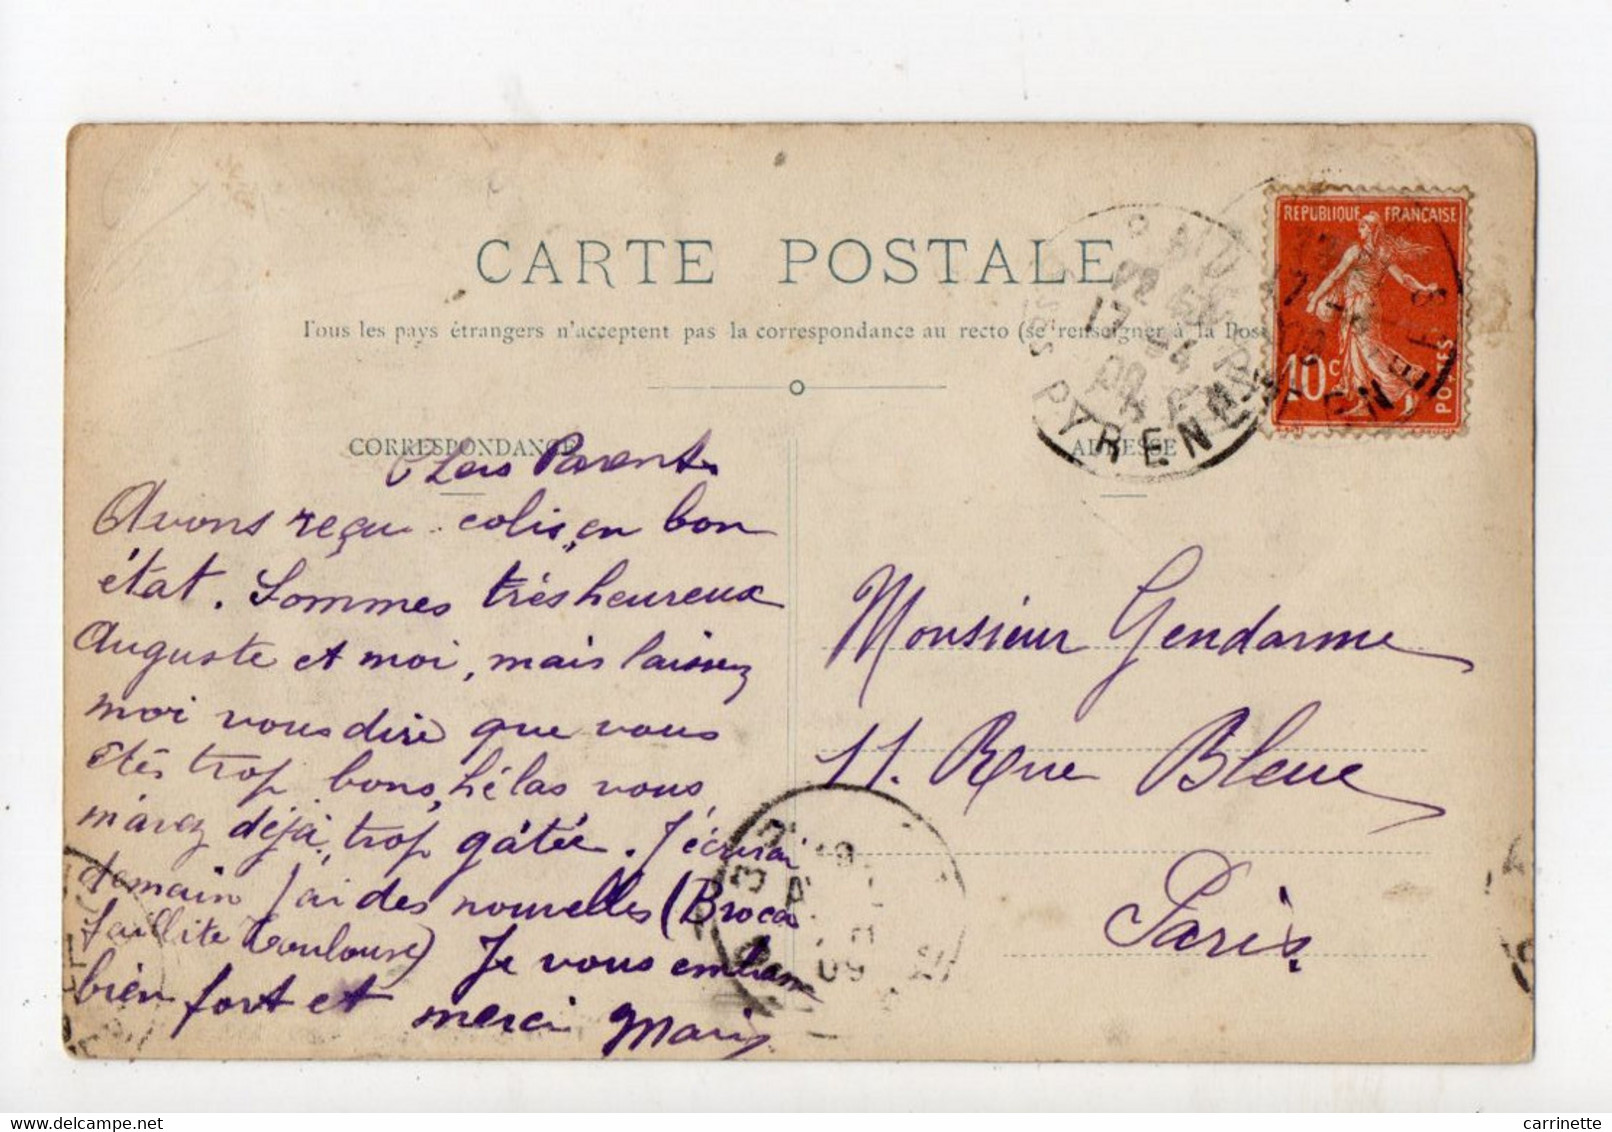 CARTE POSTALE
Tous les pays étrangers n'acceptent pas la correspondance au recto (se renseigner à la Pos
REPUBLIQUE FRANÇAISE
10c
POSTES
PYRENEES
CORRESPONDANCE
ADRESSE
Chers Parents
Avons reçu colis, en bon
état. Sommes très heureux
Auguste et moi, mais laissez
moi vous dire que vous
êtes trop bons, hélas vous
m'avez déjà, trop gâtée. J'écrirai
demain j'ai des nouvelles (Broca
faillite Toulouse) Je vous embrasse
bien fort et merci Marie
Monsieur Gendarme
11. Rue Bleue
Paris.
09
carrinette